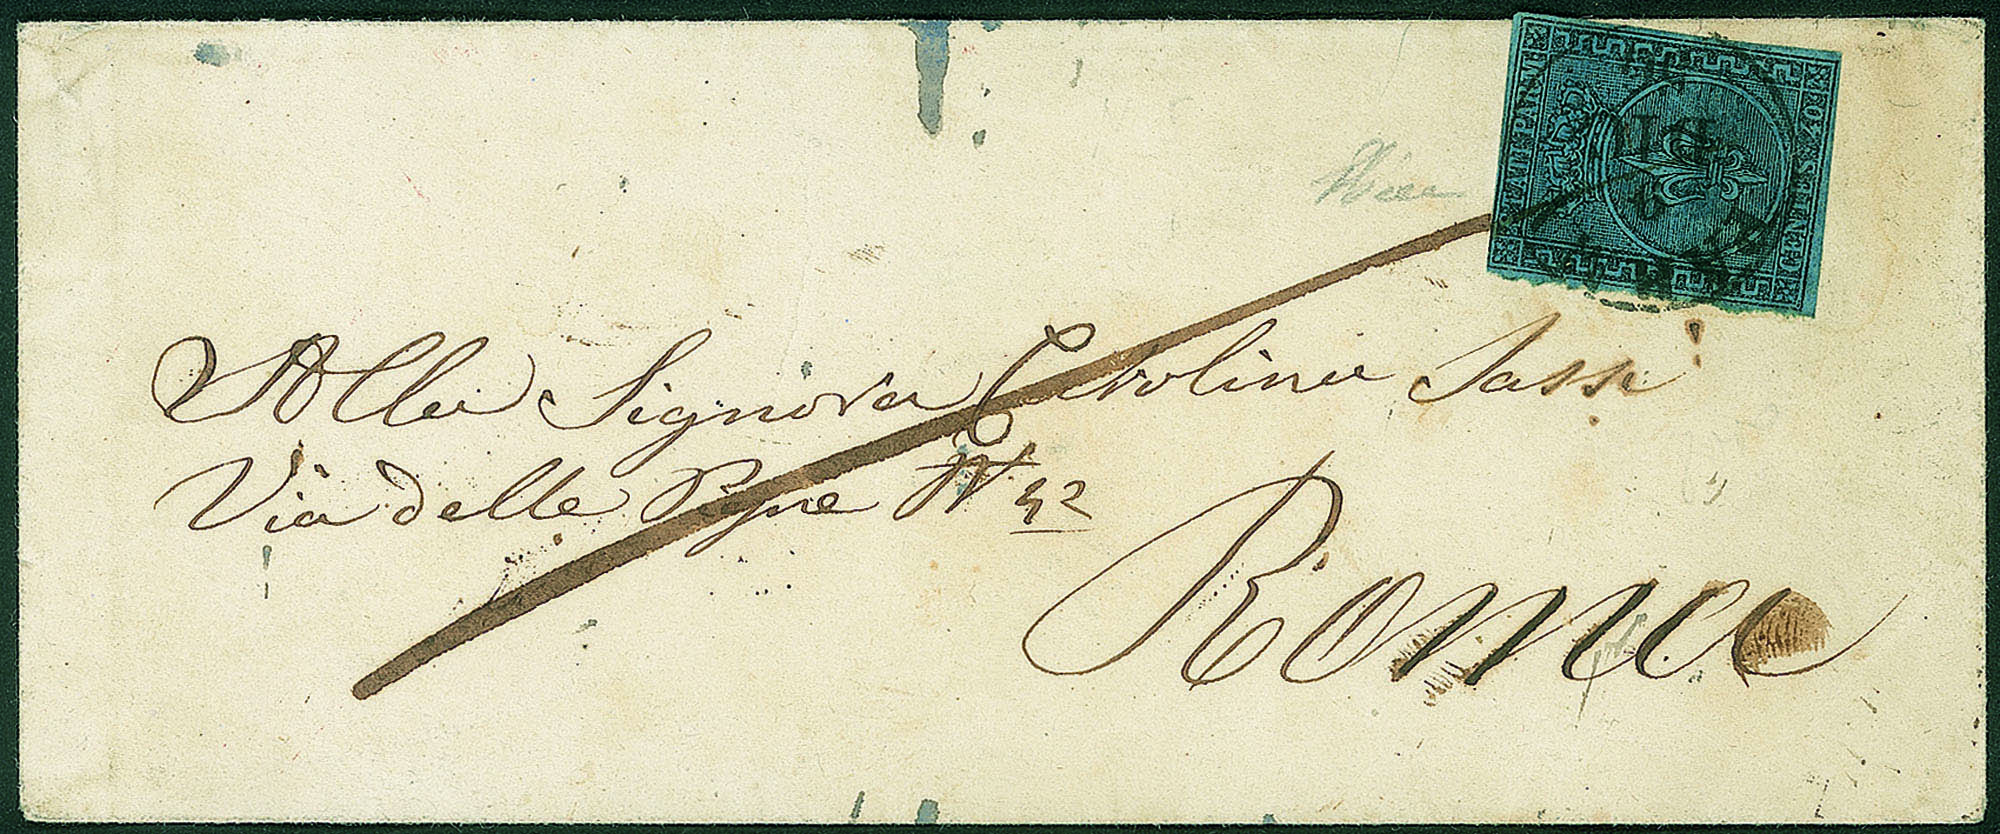 STATI PARM.
CENTES. 40
Alla Signora Carolina Sassi
Via delle Pigne N. 42
Roma